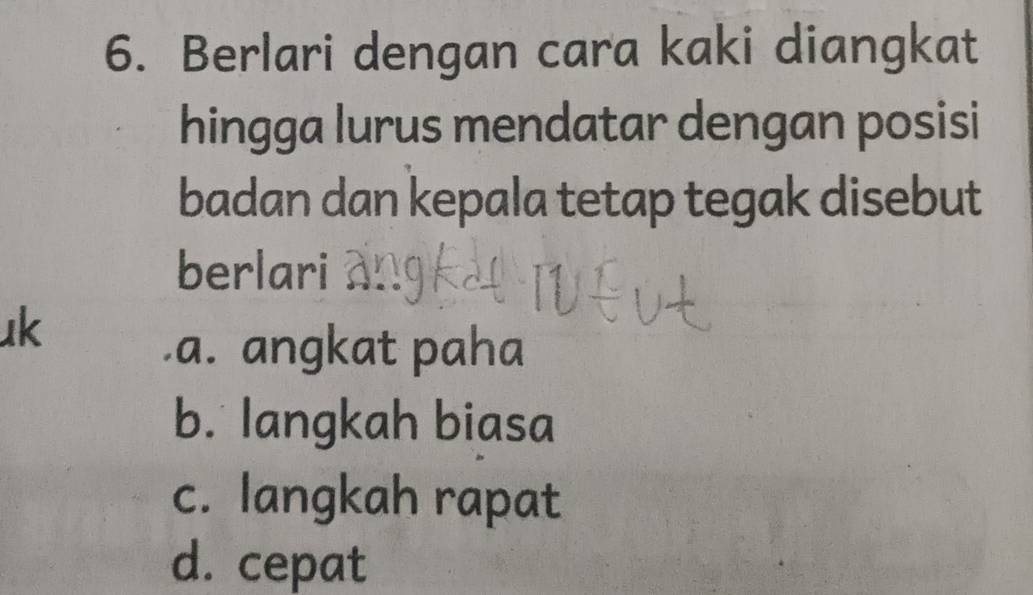 6. Berlari dengan cara kaki diangkat
hingga lurus mendatar dengan posisi
badan dan kepala tetap tegak disebut
berlari ... angkat lutut
uk
a. angkat paha
b. langkah biasa
c. langkah rapat
d. cepat